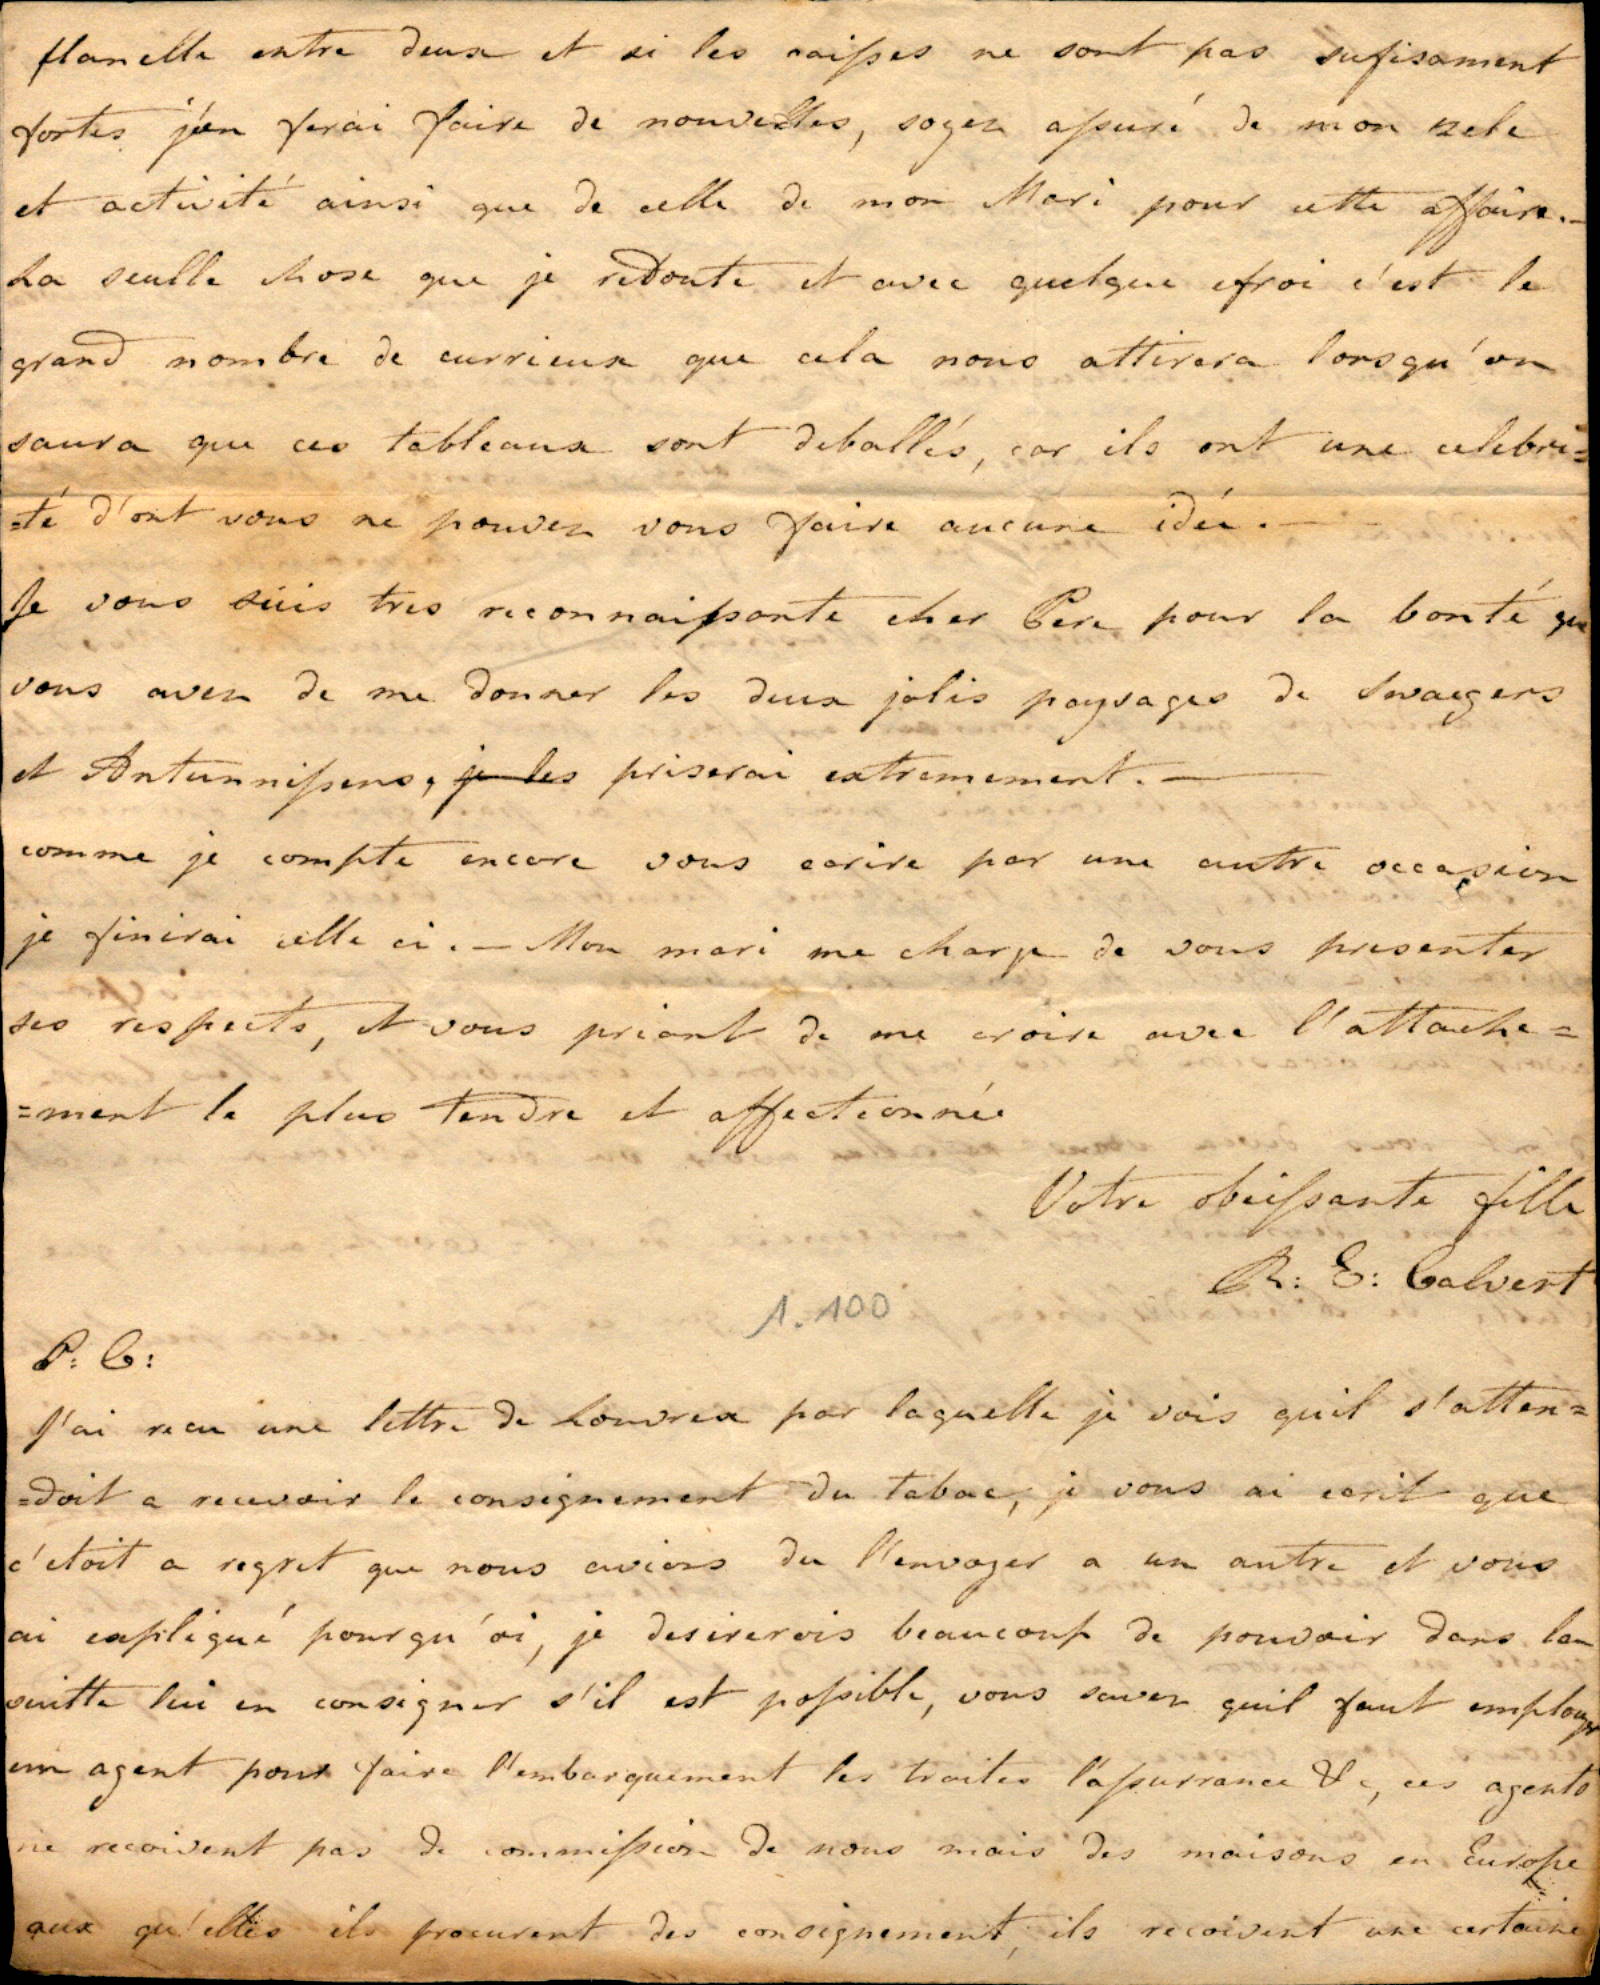 flanelle entre deux et si les caisses ne sont pas sufisament
fortes j'en ferai faire de nouvelles, soyez assuré de mon zele
et activité ainsi que de celle de mon Mari pour cette affaire.—
La seulle chose que je redoute et avec quelque efroi c'est le
grand nombre de currieux que cela nous attirera lorsqu'on
saura que ces tableaux sont deballés, car ils ont une celebri=
=té d'ont vous ne pouvez vous faire aucune idée.—
Je vous suis tres reconnaissante cher Pere pour la bonté que
vous avez de me donner les deux jolis paysages de Swagers
et Antunnissens, je les priserai extremement.—
comme je compte encore vous ecrire par une autre occasion
je finirai celle ci.— Mon mari me charge de vous presenter
ses respects, et vous priant de me croire avec l'attache=
=ment le plus tendre et affectionnée
Votre obeissante fille
R: E: Calvert
1.100
P: C:
J'ai recu une lettre de Louvrex par laquelle je vois quil s'atten=
=doit a recevoir le consignement du tabac, je vous ai ecrit que
c'etoit a regret que nous avions du l'envoyer a un autre et vous
ai expliqué pourqu'oi, je desirerois beaucoup de pouvoir dans la
suitte lui en consigner s'il est possible, vous savez quil faut employer
un agent pour faire l'embarquement les traites l'assurrance &c, ces agents
ne recoivent pas de commission de nous mais des maisons en Europe
aux qu'elles ils procurent des consignement, ils recoivent une certaine